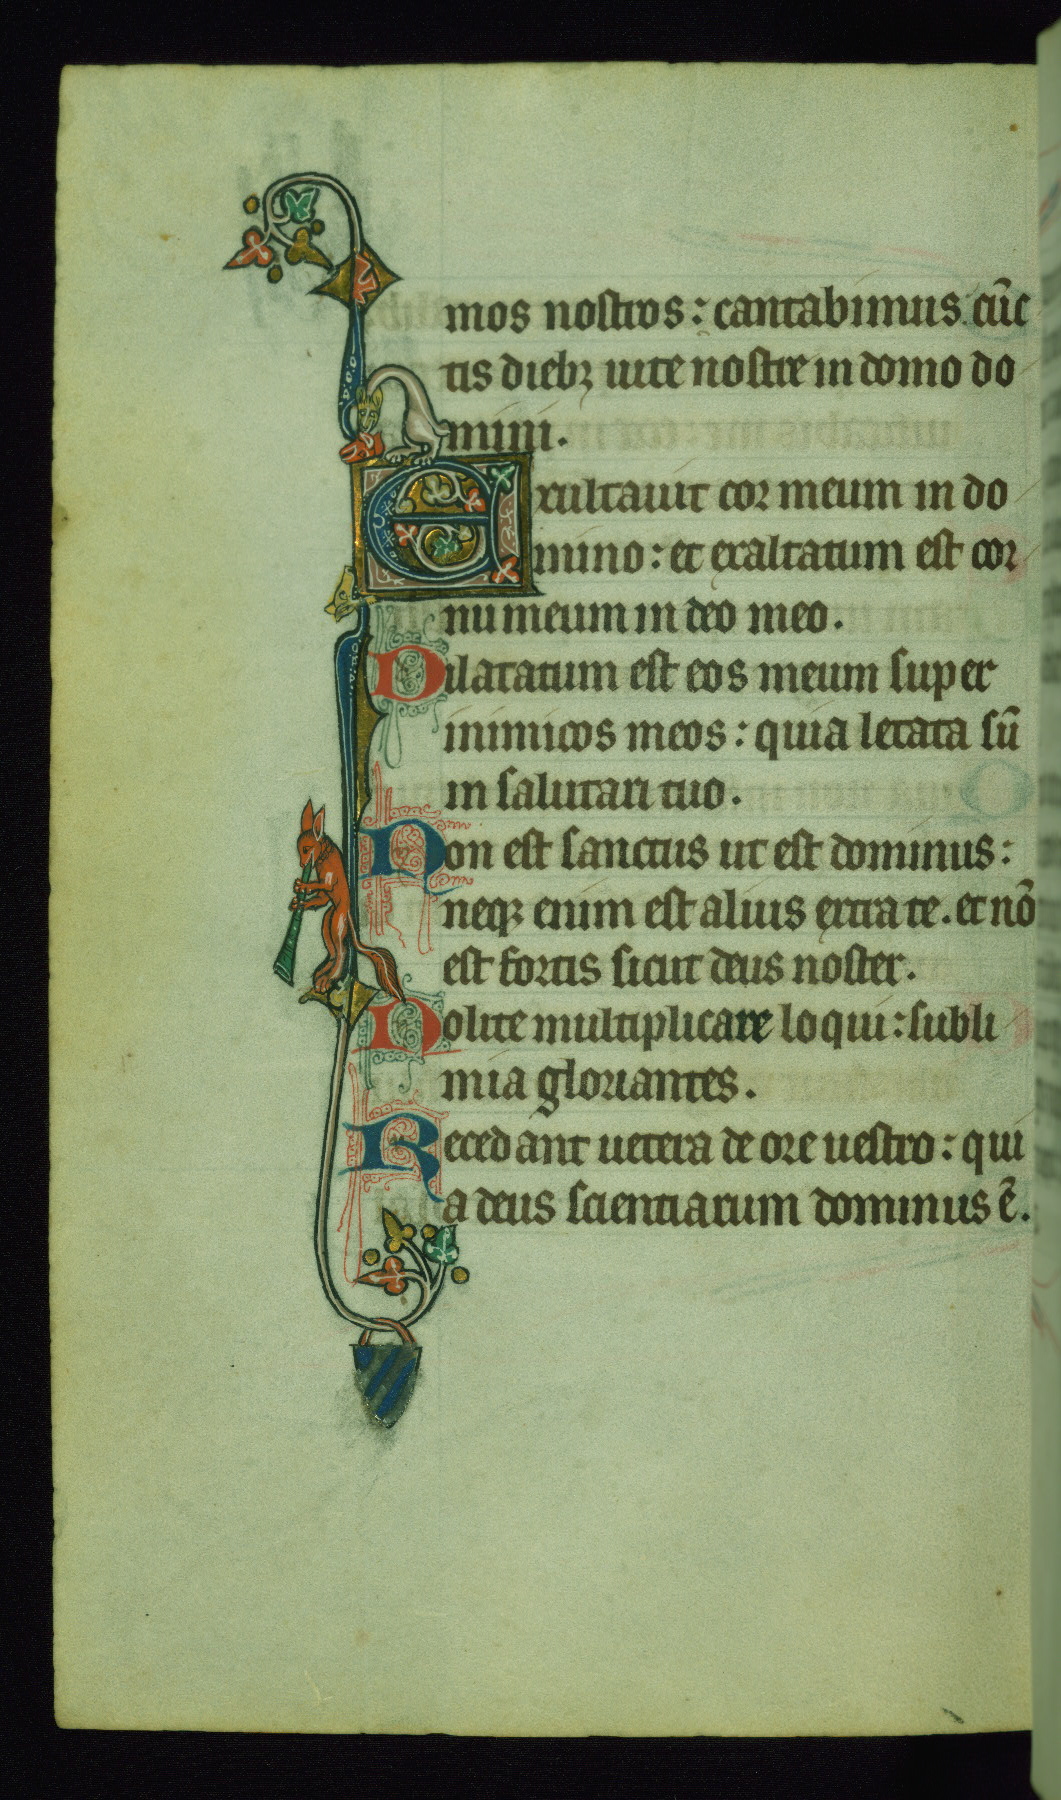 mos nostros: cantabimus cūc
tis diebꝫ uite nostre in domo do
mini.
Exultauit cor meum in do
mino: et exaltatum est cor
nu meum in deo meo.
Dilatatum est eos meum super
inimicos meos: quia letata sū
in salutari tuo.
Non est sanctus ut est dominus:
neqꝫ enim est alius extra te. et nō
est fortis sicut deus noster.
Nolite multiplicare loqui: subli
mia gloriantes.
Recedant uetera de ore uestro: qui
a deus scientiarum dominus ē.